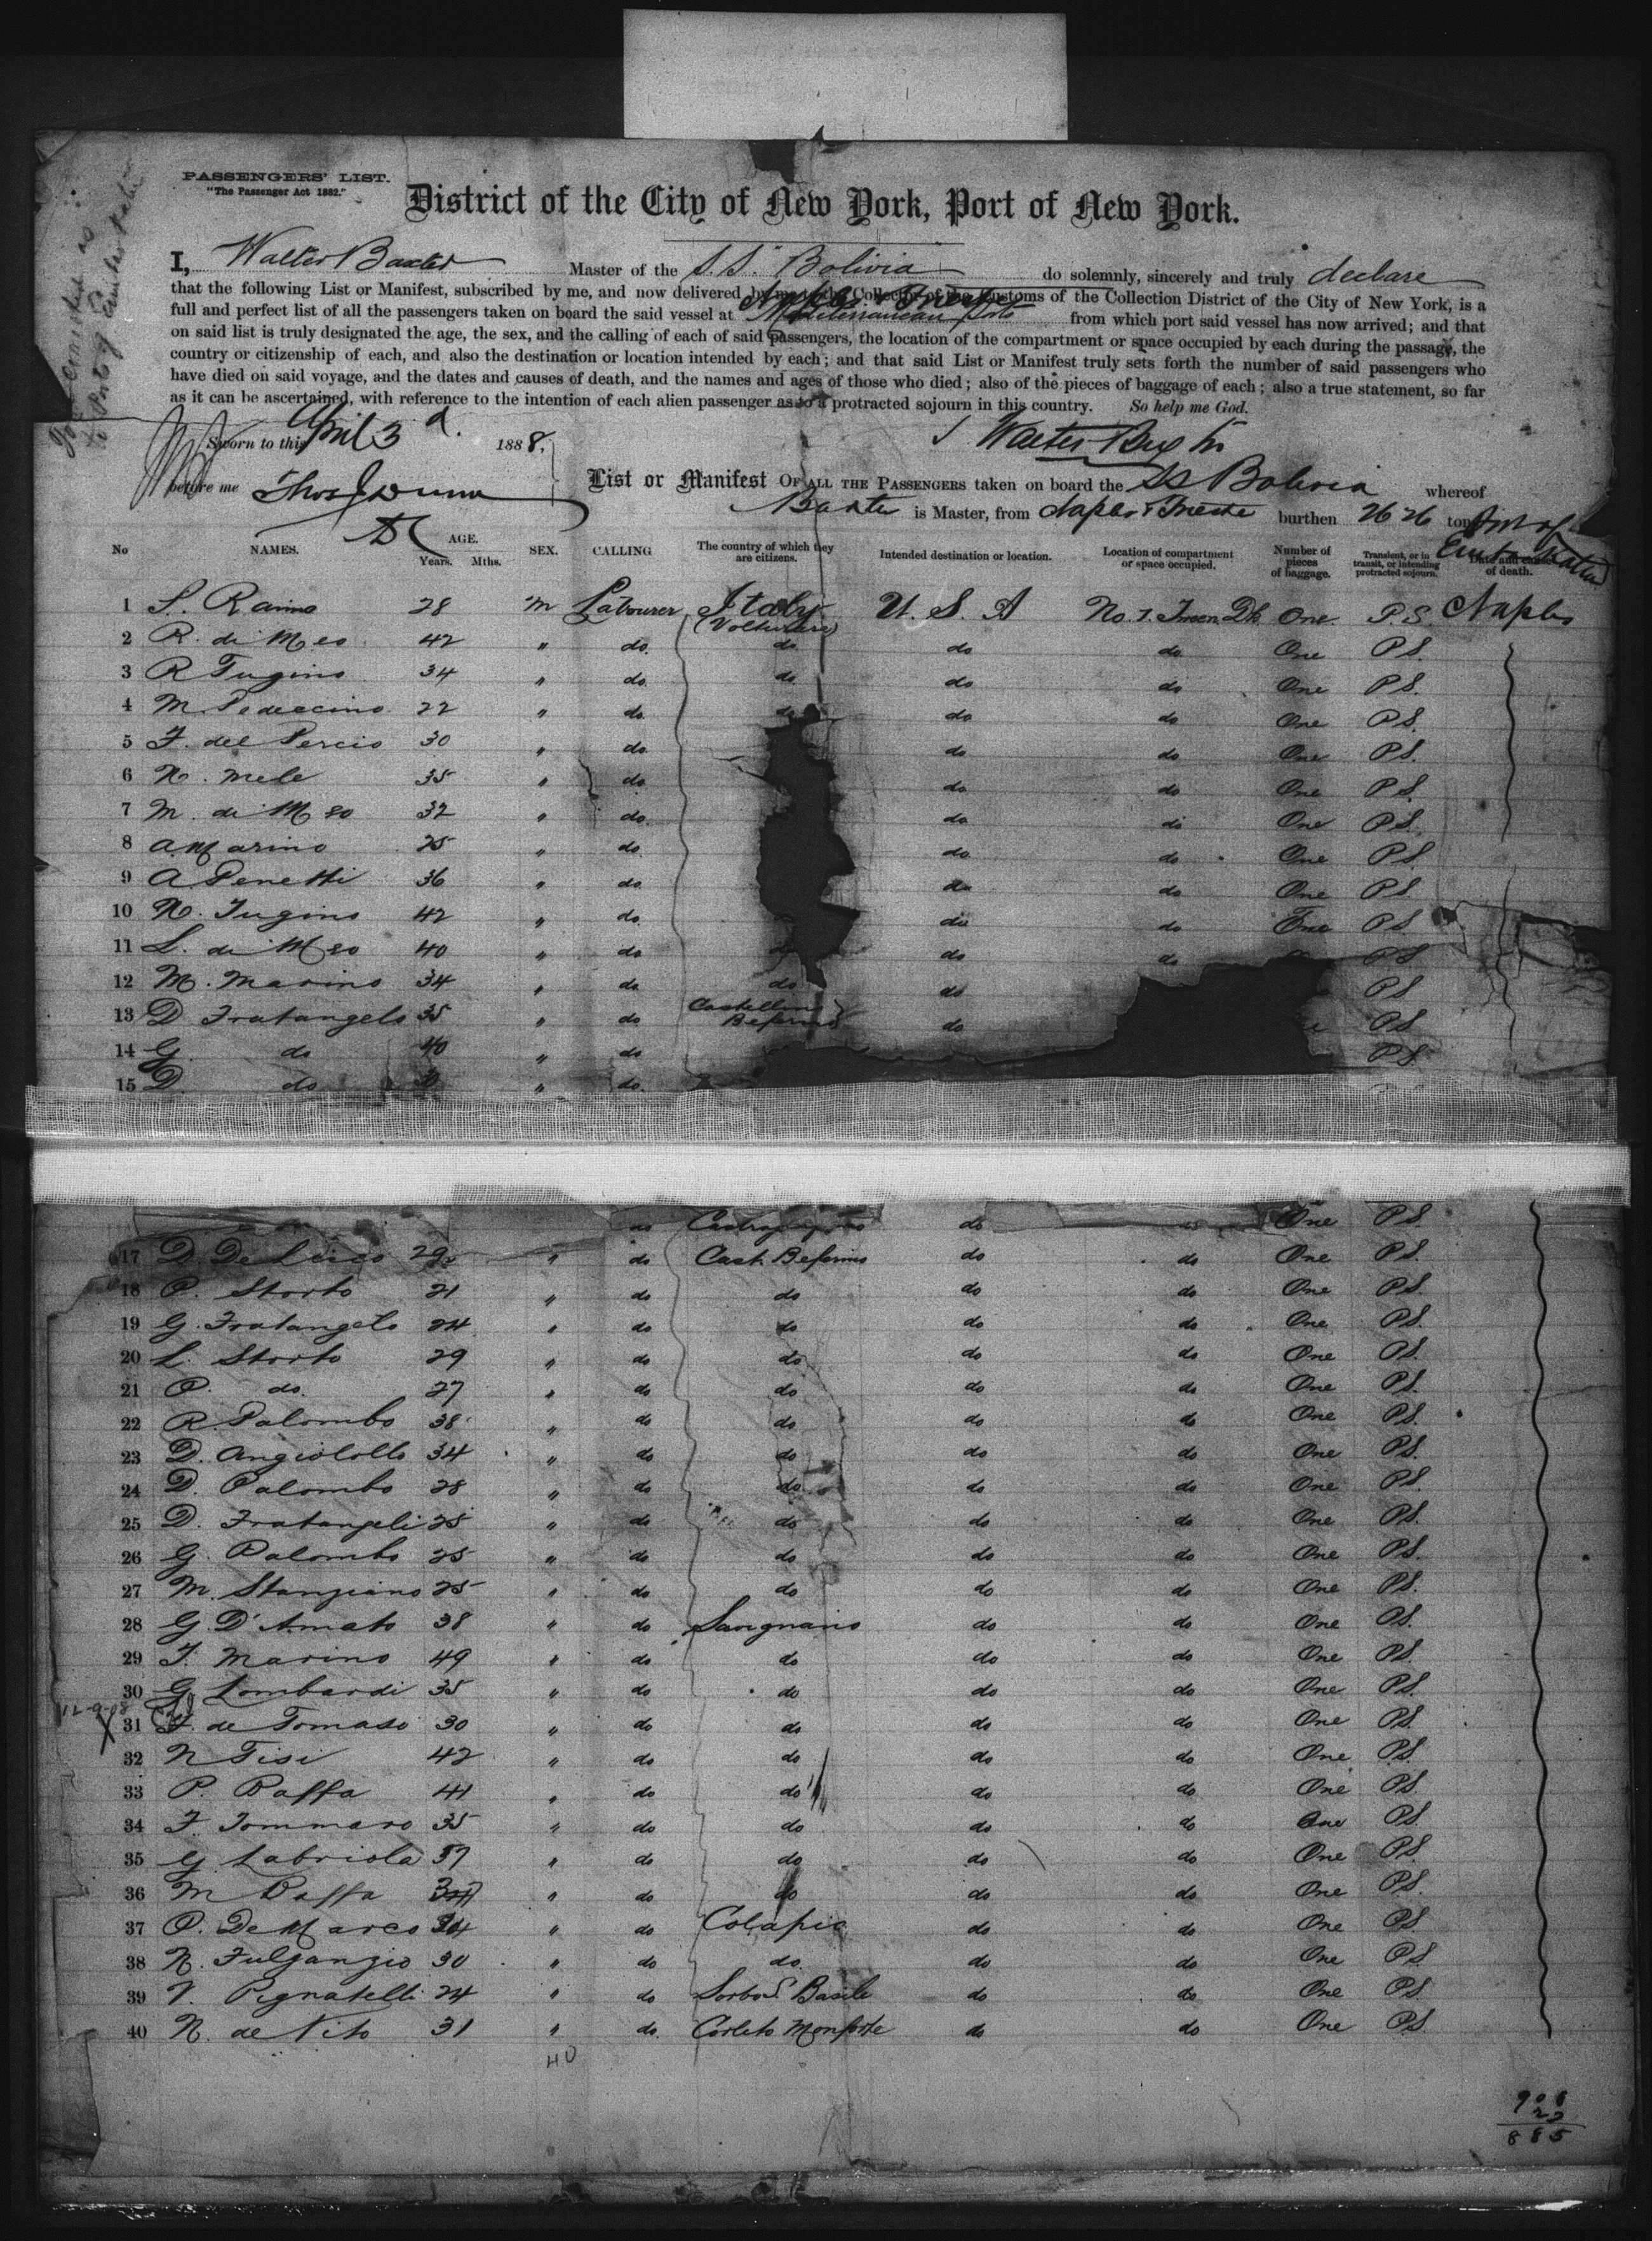 PASSENGERS' LIST.
"The Passenger Act 1882."
District of the City of New York, Port of New York.
I, Walter Baxter Master of the S.S. Bolivia do solemnly, sincerely and truly declare
that the following List or Manifest, subscribed by me, and now delivered by me to the Collector of the Customs of the Collection District of the City of New York, is a
full and perfect list of all the passengers taken on board the said vessel at Naples & Trieste Mediterranean Ports from which port said vessel has now arrived; and that
on said list is truly designated the age, the sex, and the calling of each of said Passengers, the location of the compartment or space occupied by each during the passage, the
country or citizenship of each, and also the destination or location intended by each; and that said List or Manifest truly sets forth the number of said passengers who
have died on said voyage, and the dates and causes of death, and the names and ages of those who died; also of the pieces of baggage of each; also a true statement, so far
as it can be ascertained, with reference to the intention of each alien passenger as to a protracted sojourn in this country. So help me God.
Sworn to this April 3 d. 1888, Walter Baxter
before me Thos J Dunn
List or Manifest OF ALL THE PASSENGERS taken on board the SS Bolivia whereof
Baxter is Master, from Naples & Trieste burthen 2626 tons
No NAMES. AGE. Years. Mths. SEX. CALLING The country of which they are citizens. Intended destination or location. Location of compartment or space occupied. Number of pieces of baggage. Transient, or in transit, or intending protracted sojourn. Date and cause of death.
1 28 m Labourer Italy U. S. A No. 1. One. P.S. Naples
2 R. di Meo 42 " do. do. do do. One P.S.
3 R 34 " do. do. do do One P.S.
4 M. 22 " do. do. do do One P.S.
5 F. del Percio 30 " do. do do One P.S.
6 N. Mele 35 " do. do do One P.S.
7 M. di Meo 32 " do. do do One P.S.
8 A. Marino 25 " do. do do One P.S.
9 A Penetti 36 " do. do do One P.S.
10 N. 42 " do. do do One P.S.
11 L. di Meo 40 " do do do P.S.
12 M. Marino 34 " do. do do P.S.
13 D Fratangelo 35 " do do P.S.
14 G. do 40 " do P.S.
15 D. do " do.
do do One P.S.
17 D. De 29 " do Cast. do do One P.S.
18 P. Storto 21 " do do do do One P.S.
19 G. Fratangelo 24 " do do do do One P.S.
20 L. Storto 29 " do do do do One P.S.
21 P. do. 27 " do do do do One P.S.
22 R. Palombo 38 " do do do do One P.S.
23 D. Angiolollo 34 " do do do do One P.S.
24 D. Palombo 28 " do do do do One P.S.
25 D. Fratangeli 25 " do do do do One P.S.
26 G. Palombo 25 " do do do do One P.S.
27 M. Stanziano 25 " do do do do One P.S.
28 G. D'Amato 38 " do Savignano do do One P.S.
29 F. Marino 49 " do do do do One P.S.
30 G. Lombardi 35 " do do do do One P.S.
31 F. de Tomaso 30 " do do do do One P.S.
32 N Tisi 42 " do do do do One P.S.
33 P. Baffa 41 " do do do do One P.S.
34 F. Tommaro 35 " do do do do One P.S.
35 G. Labriola 37 " do do do do One P.S.
36 M Baffa " do do do do One P.S.
37 P. De Marco 34 " do do do One P.S.
38 N. Fulganzio 30 " do do. do do One P.S.
39 V. Pignatelli 24 " do Sorbo S. Basile do do One P.S.
40 N. de Vito 31 " do. Corleto Monforte do do One P.S.
40
906
22
885